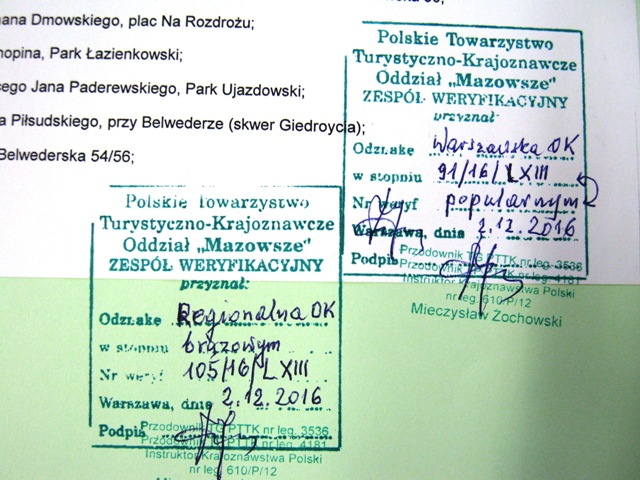 mana Dmowskiego, plac Na Rozdrożu;
hopina, Park Łazienkowski;
cego Jana Paderewskiego, Park Ujazdowski;
a Piłsudskiego, przy Belwederze (skwer Giedroycia);
Belwederska 54/56;
Polskie Towarzystwo
Turystyczno-Krajoznawcze
Oddział „Mazowsze"
ZESPÓŁ WERYFIKACYJNY
przyznał:
Odznakę Warszawska OK
w stopniu 91/16/LXIII
Nr weryf popularnym
Warszawa, dnia 2.12.2016
Podpis
Przodownik TG PTTK nr leg. 3536
Przodownik TP PTTK nr leg. 4181
Instruktor Krajoznawstwa Polski
nr leg. 610/P/12
Mieczysław Żochowski
Polskie Towarzystwo
Turystyczno-Krajoznawcze
Oddział „Mazowsze"
ZESPÓŁ WERYFIKACYJNY
przyznał:
Odznakę Regionalna OK
w stopniu brązowym
Nr weryf. 105/16/LXIII
Warszawa, dnia 2.12.2016
Podpis
Przodownik TG PTTK nr leg. 3536
Przodownik TP PTTK nr leg. 4181
Instruktor Krajoznawstwa Polski
nr leg. 610/P/12